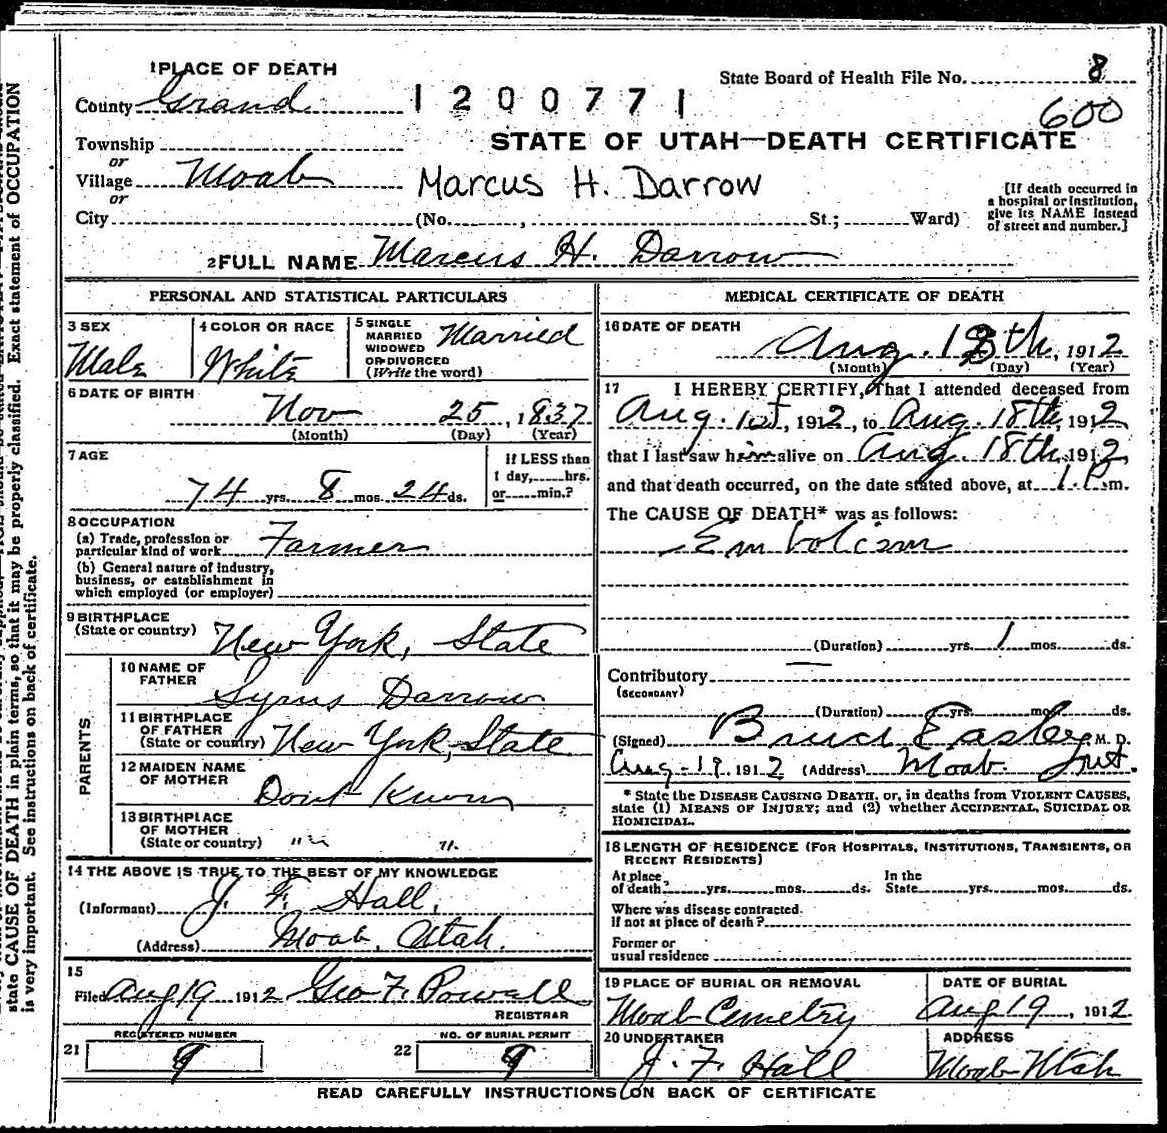 1 PLACE OF DEATH
State Board of Health File No. 8
County Grand
1200771
600
STATE OF UTAH—DEATH CERTIFICATE
Township
or
Village Moab
Marcus H. Darrow
or
City (No. , St.; Ward)
[If death occurred in
a hospital or institution,
give its NAME instead
of street and number.]
2 FULL NAME Marcus H. Darrow
PERSONAL AND STATISTICAL PARTICULARS
3 SEX
Male
4 COLOR OR RACE
White
5 SINGLE
MARRIED
WIDOWED
OR DIVORCED
(Write the word)
Married
6 DATE OF BIRTH
Nov 25, 1837
(Month) (Day) (Year)
7 AGE
74 yrs. 8 mos. 24 ds.
If LESS than
1 day, hrs.
or min.?
8 OCCUPATION
(a) Trade, profession or
particular kind of work Farmer
(b) General nature of industry,
business, or establishment in
which employed (or employer)
9 BIRTHPLACE
(State or country) New York, State
PARENTS
10 NAME OF
FATHER
Syrus Darrow
11 BIRTHPLACE
OF FATHER
(State or country) New York, State
12 MAIDEN NAME
OF MOTHER
Dont Know
13 BIRTHPLACE
OF MOTHER
(State or country) " "
14 THE ABOVE IS TRUE TO THE BEST OF MY KNOWLEDGE
(Informant) J. F. Hall,
(Address) Moab, Utah.
15
Filed Aug 19 1912 Geo F. Powell
REGISTRAR
REGISTERED NUMBER
21 9
NO. OF BURIAL PERMIT
22 9
MEDICAL CERTIFICATE OF DEATH
16 DATE OF DEATH
Aug. 18th, 1912
(Month) (Day) (Year)
17 I HEREBY CERTIFY, That I attended deceased from
Aug. 1st, 1912, to Aug. 18th, 1912
that I last saw him alive on Aug. 18th, 1912,
and that death occurred, on the date stated above, at 1. P. m.
The CAUSE OF DEATH* was as follows:
Embolism
(Duration) yrs. 1 mos. ds.
Contributory —
(SECONDARY)
(Duration) yrs. mos. ds.
(Signed) M. D.
Aug. 19. 1912 (Address) Moab
* State the DISEASE CAUSING DEATH, or, in deaths from VIOLENT CAUSES,
state (1) MEANS OF INJURY; and (2) whether ACCIDENTAL, SUICIDAL OR
HOMICIDAL.
18 LENGTH OF RESIDENCE (FOR HOSPITALS, INSTITUTIONS, TRANSIENTS, OR
RECENT RESIDENTS)
At place
of death yrs. mos. ds.
In the
State yrs. mos. ds.
Where was disease contracted.
If not at place of death?
Former or
usual residence
19 PLACE OF BURIAL OR REMOVAL
Moab Cemetry
DATE OF BURIAL
Aug 19, 1912
20 UNDERTAKER
J. F. Hall
ADDRESS
Moab Utah
READ CAREFULLY INSTRUCTIONS ON BACK OF CERTIFICATE
state CAUSE OF DEATH in plain terms, so that it may be properly classified. Exact statement of OCCUPATION
is very important. See instructions on back of certificate.